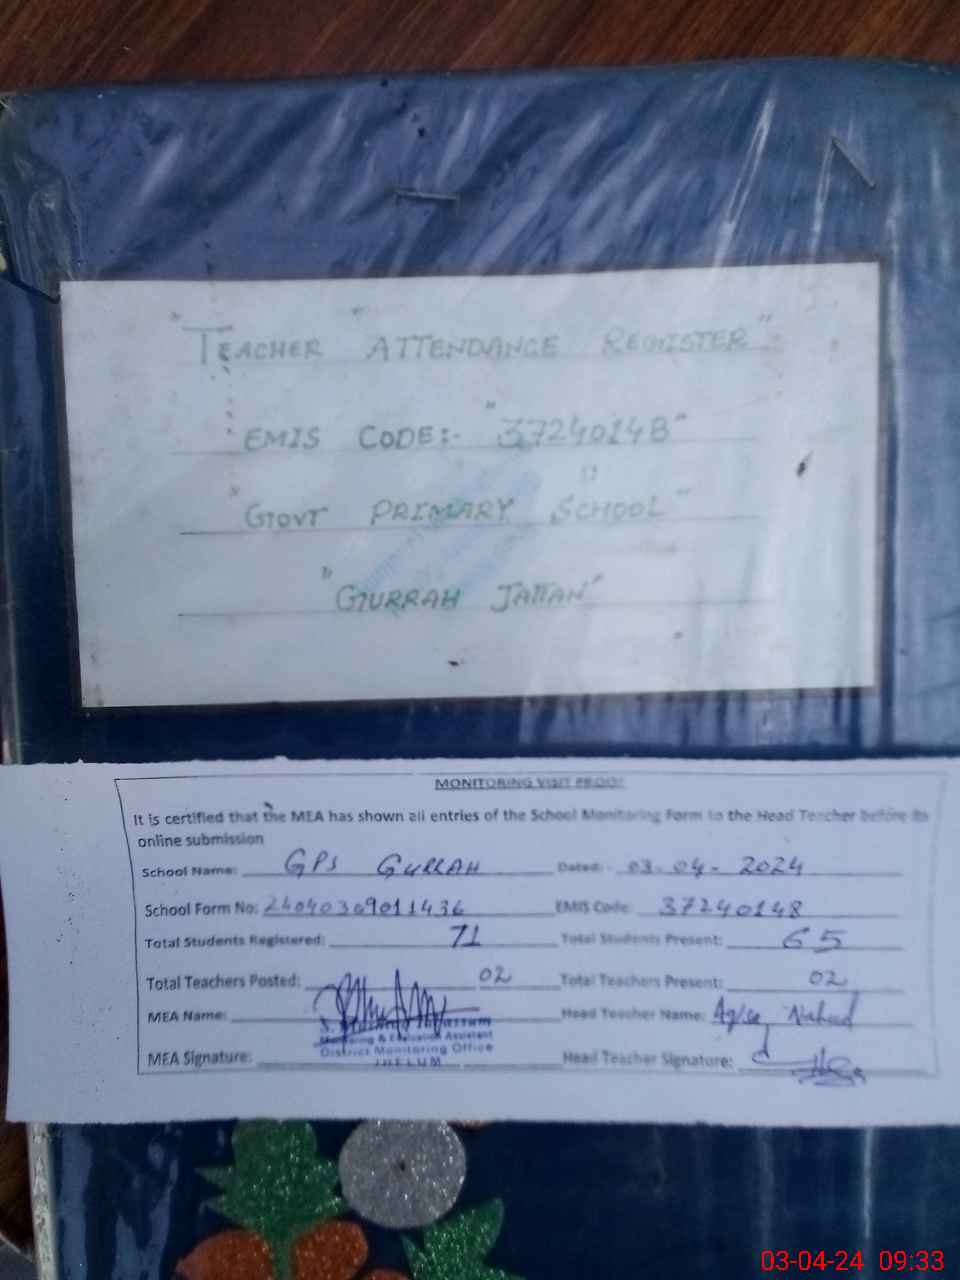 "TEACHER ATTENDANCE REGISTER"
EMIS CODE:- "37240148"
GOVT PRIMARY SCHOOL"
"GURRAH JATTAN"
MONITORING VISIT PROOF
It is certified that the MEA has shown all entries of the School Monitoring Form to the Head Teacher before its
online submission
School Name: GPS GURRAH Dated: 03-04-2024
School Form No: 24040309011436 EMIS Code: 37240148
Total Students Registered: 71 Total Students Present: 65
Total Teachers Posted: 02 Total Teachers Present: 02
MEA Name: Head Teacher Name:
Monitoring & Evaluation Assistant
District Monitoring Office
JHELUM
MEA Signature: Head Teacher Signature:
03-04-24 09:33